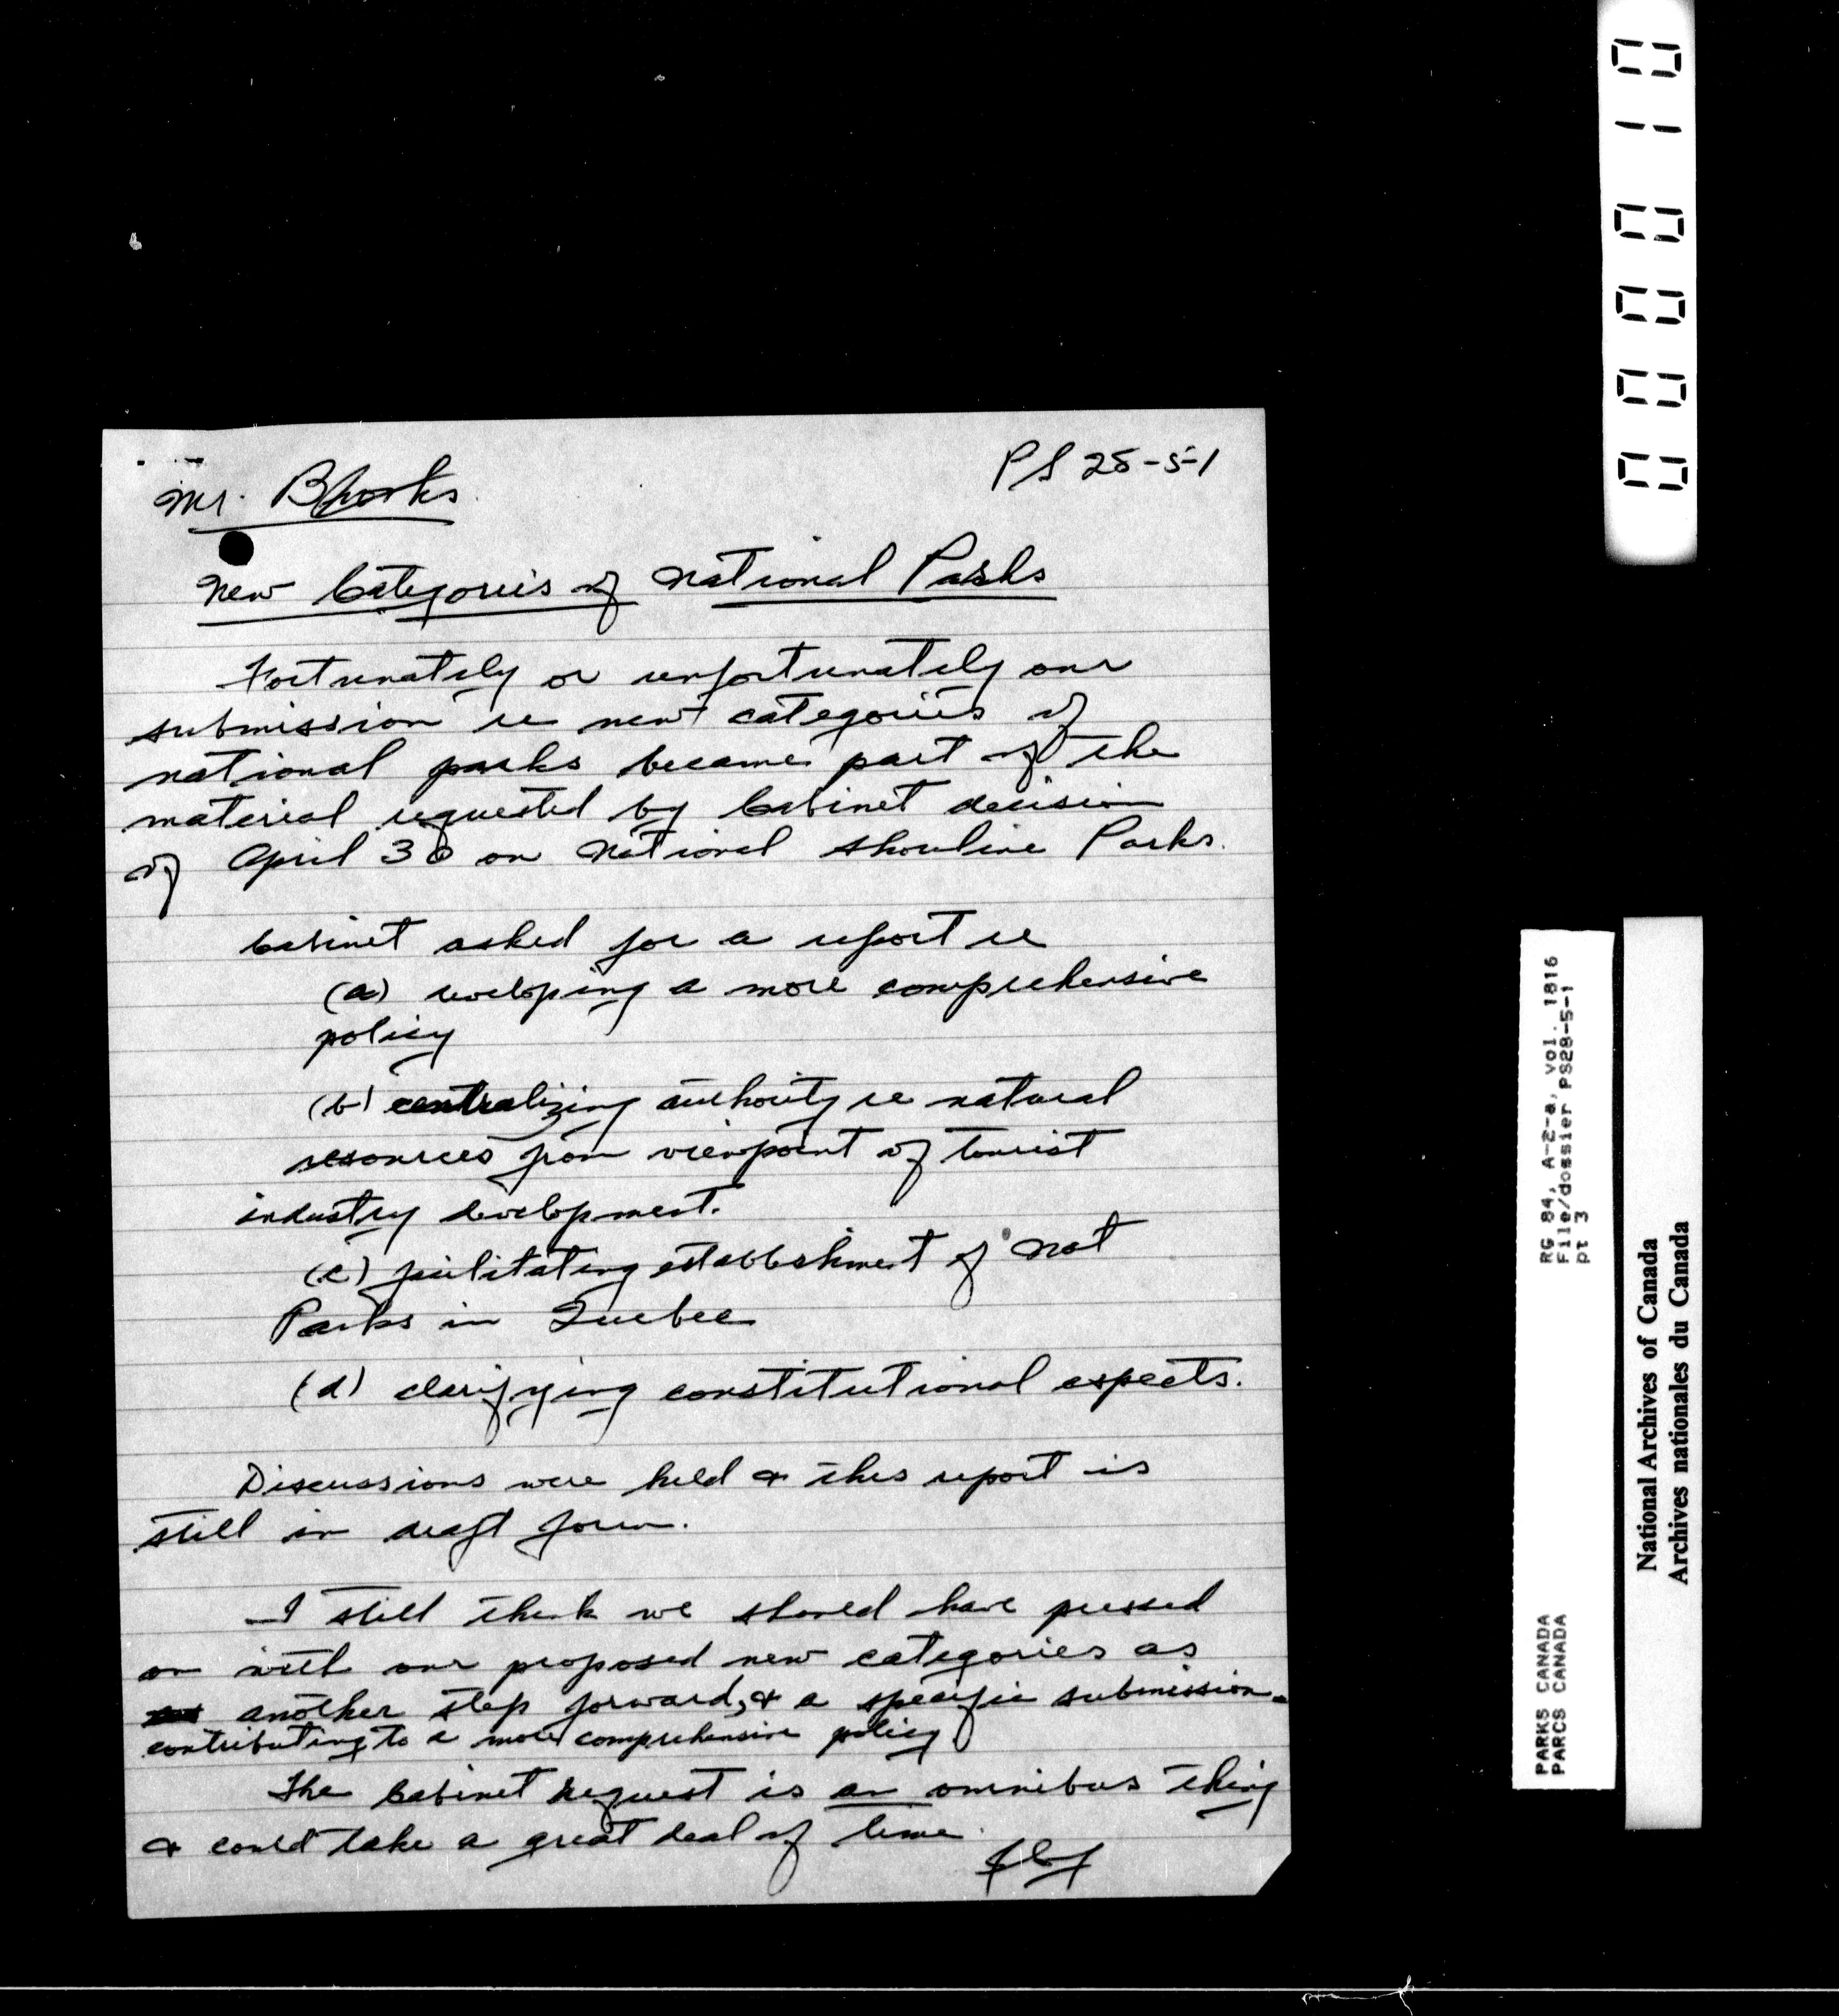 Mr. Brooks
PS 28-5-1
New Categories of National Parks
Fortunately or unfortunately our
submission re new categories of
national parks became part of the
material requested by Cabinet decision
of April 30 on National Shoreline Parks.
Cabinet asked for a report re
(a) developing a more comprehensive
policy
(b) centralizing authority re natural
resources from viewpoint of tourist
industry development.
(c) facilitating establishment of Nat
Parks in Quebec
(d) clarifying constitutional aspects.
Discussions were held & this report is
still in draft form.
I still think we should have pressed
on with our proposed new categories as
another step forward, & a specific submission
contributing to a more comprehensive policy
The Cabinet request is an omnibus thing
& could take a great deal of time.
000010
RG 84, A-2-a, vol. 1816
File/dossier PS28-5-1
pt 3
PARKS CANADA
PARCS CANADA
National Archives of Canada
Archives nationales du Canada